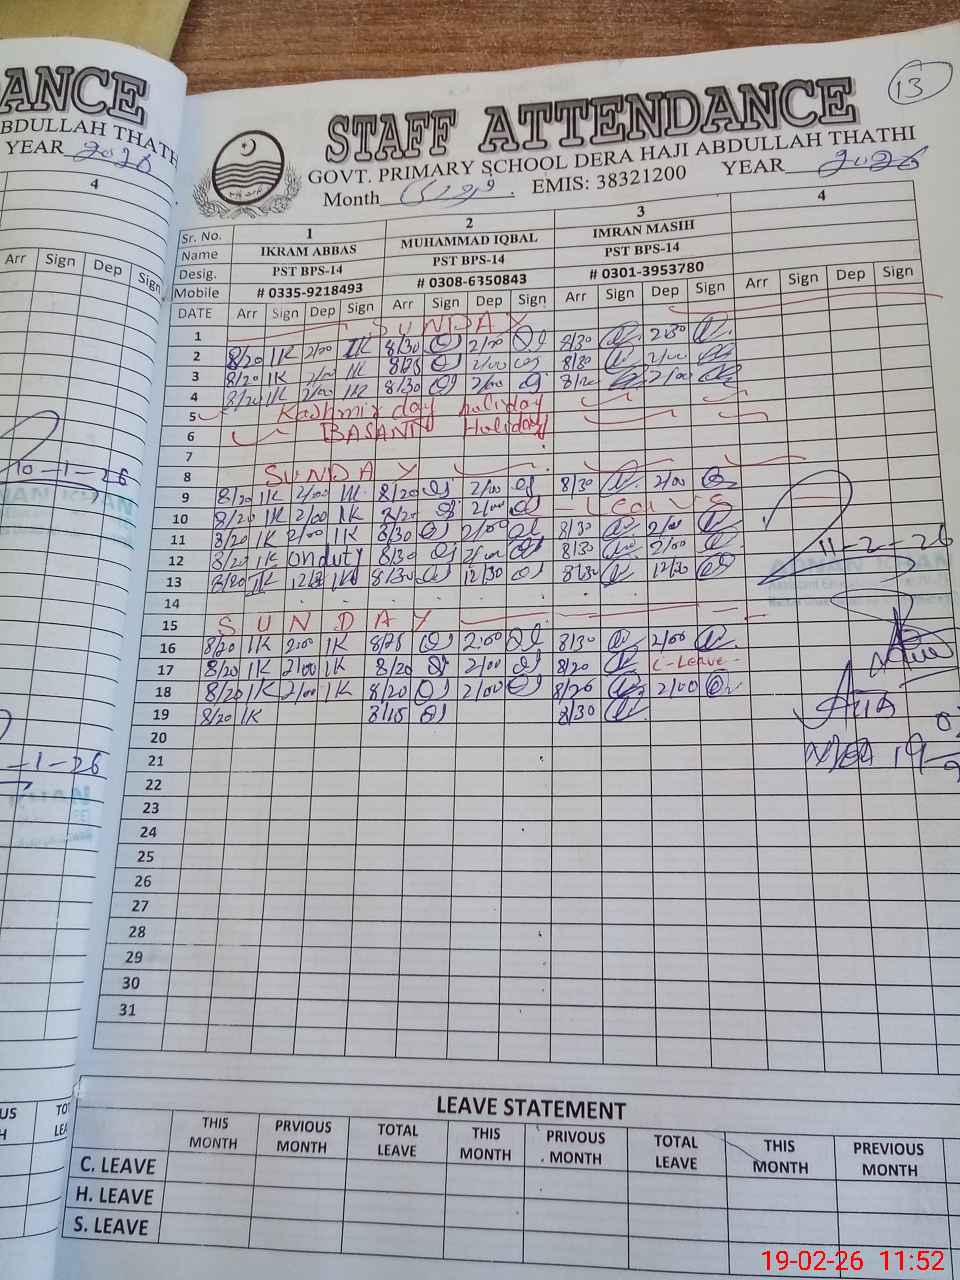 ANCE
BDULLAH THATH
YEAR 2026
4
Arr Sign Dep Sign
10-1-26
-1-26
13
STAFF ATTENDANCE
GOVT. PRIMARY SCHOOL DERA HAJI ABDULLAH THATHI
Month فروری EMIS: 38321200 YEAR 2026
Sr. No. 1 2 3 4
Name IKRAM ABBAS MUHAMMAD IQBAL IMRAN MASIH
Desig. PST BPS-14 PST BPS-14 PST BPS-14
Mobile # 0335-9218493 # 0308-6350843 # 0301-3953780
DATE Arr Sign Dep Sign Arr Sign Dep Sign Arr Sign Dep Sign Arr Sign Dep Sign
1 SUNDAY
2 8/20 IK 2/00 IK 8/30 2/00 8/30 2/30
3 8/20 IK 2/00 IK 8/25 2/00 8/30 2/00
4 8/20 IK 2/00 IK 8/30 2/00 8/20 2/00
5 Kashmir day holiday
6 BASANT Holiday
7
8 SUNDAY
9 8/20 IK 2/00 IK 8/20 2/00 8/30 2/00
10 8/20 IK 2/00 IK 8/20 2/00 - Leave
11 8/20 IK 2/00 IK 8/30 2/00 8/30 2/00
12 8/20 IK on duty 8/30 2/00 8/30 2/00
13 8/20 IK 12/30 IK 8/30 12/30 8/30 12/30
14
15 SUNDAY
16 8/20 IK 2:00 IK 8/25 2:00 8/30 2/00
17 8/20 IK 2/00 IK 8/20 2/00 8/20 C-Leave-
18 8/20 IK 2/00 IK 8/20 2/00 8/26 2/00
19 8/20 IK 8/15 8/30
20
21
22
23
24
25
26
27
28
29
30
31
11-2-26
LEAVE STATEMENT
THIS MONTH PRVIOUS MONTH TOTAL LEAVE THIS MONTH PRIVOUS MONTH TOTAL LEAVE THIS MONTH PREVIOUS MONTH
C. LEAVE
H. LEAVE
S. LEAVE
19-02-26 11:52